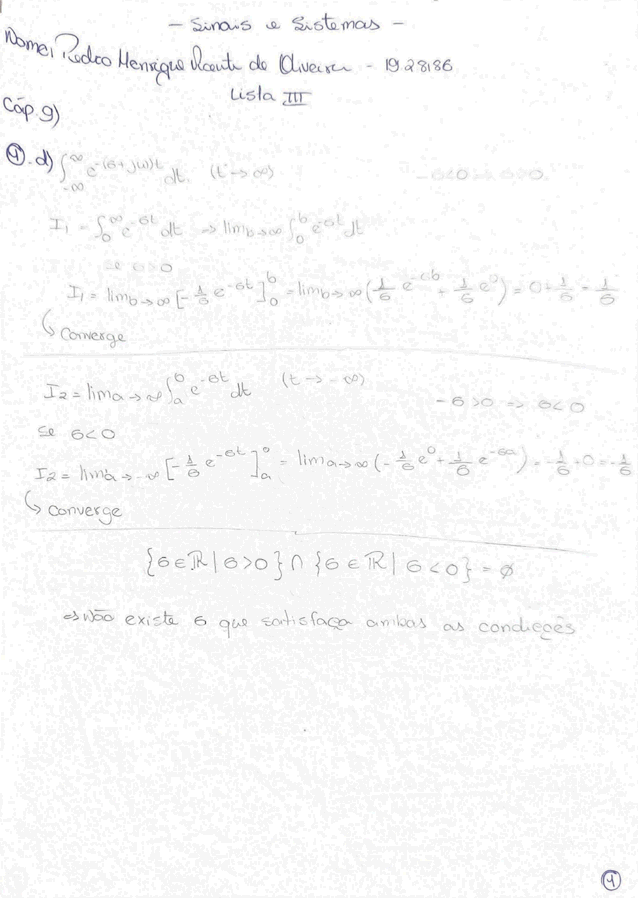 - Sinais e Sistemas -
Nome: Pedro Henrique Vicente de Oliveira - 1928186
Lista III
Cáp. 9)
④.d) ∫_{-∞}^{∞} e^{-(σ+jω)t} dt. (t → ∞) -σ<0 => σ>0.
I₁ = ∫_0^∞ e^{-σt} dt => lim b→∞ ∫_0^b e^{-σt} dt
se σ>0
I₁ = lim b→∞ [-1/σ e^{-σt}]_0^b = lim b→∞ (-1/σ e^{-σb} + 1/σ e^0) = 0 + 1/σ = 1/σ
↳ Converge
I₂ = lim a→-∞ ∫_a^0 e^{-σt} dt (t → -∞) -σ>0 => σ<0
se σ<0
I₂ = lim a→-∞ [-1/σ e^{-σt}]_a^0 = lim a→∞ (-1/σ e^0 + 1/σ e^{-σa}) = -1/σ + 0 = -1/σ
↳ converge
{σ ∈ ℝ | σ>0} ∩ {σ ∈ ℝ | σ<0} = ∅
=> Não existe σ que satisfaça ambas as condições
④